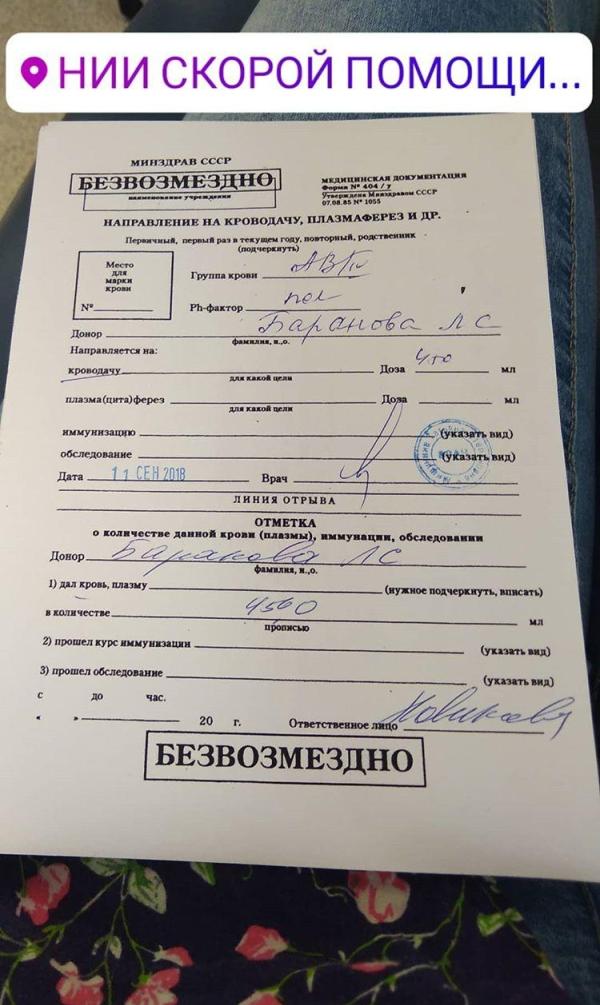 НИИ СКОРОЙ ПОМОЩИ...
МИНЗДРАВ СССР
БЕЗВОЗМЕЗДНО
наименование учреждения
МЕДИЦИНСКАЯ ДОКУМЕНТАЦИЯ
Форма № 404 / у
Утверждена Минздравом СССР
07.08.85 № 1055
НАПРАВЛЕНИЕ НА КРОВОДАЧУ, ПЛАЗМАФЕРЕЗ И ДР.
Первичный, первый раз в текущем году, повторный, родственник
(подчеркнуть)
Место
для
марки
крови
№
Группа крови АВ IV
Рh-фактор пол
Донор Баранова Л С
фамилия, и.,о.
Направляется на:
кроводачу Доза 450 мл
для какой цели
плазма(цита)ферез Доза мл
для какой цели
иммунизацию (указать вид)
обследование (указать вид)
Дата 11 СЕН 2018 Врач
ЛИНИЯ ОТРЫВА
ОТМЕТКА
о количестве данной крови (плазмы), иммунации, обследовании
Донор Баранова ЛС
фамилия, и.,о.
1) дал кровь, плазму (нужное подчеркнуть, вписать)
в количестве мл
прописью
2) прошел курс иммунизации (указать вид)
3) прошел обследование (указать вид)
с до час.
" " 20 г. Ответственное лицо Новикова
БЕЗВОЗМЕЗДНО